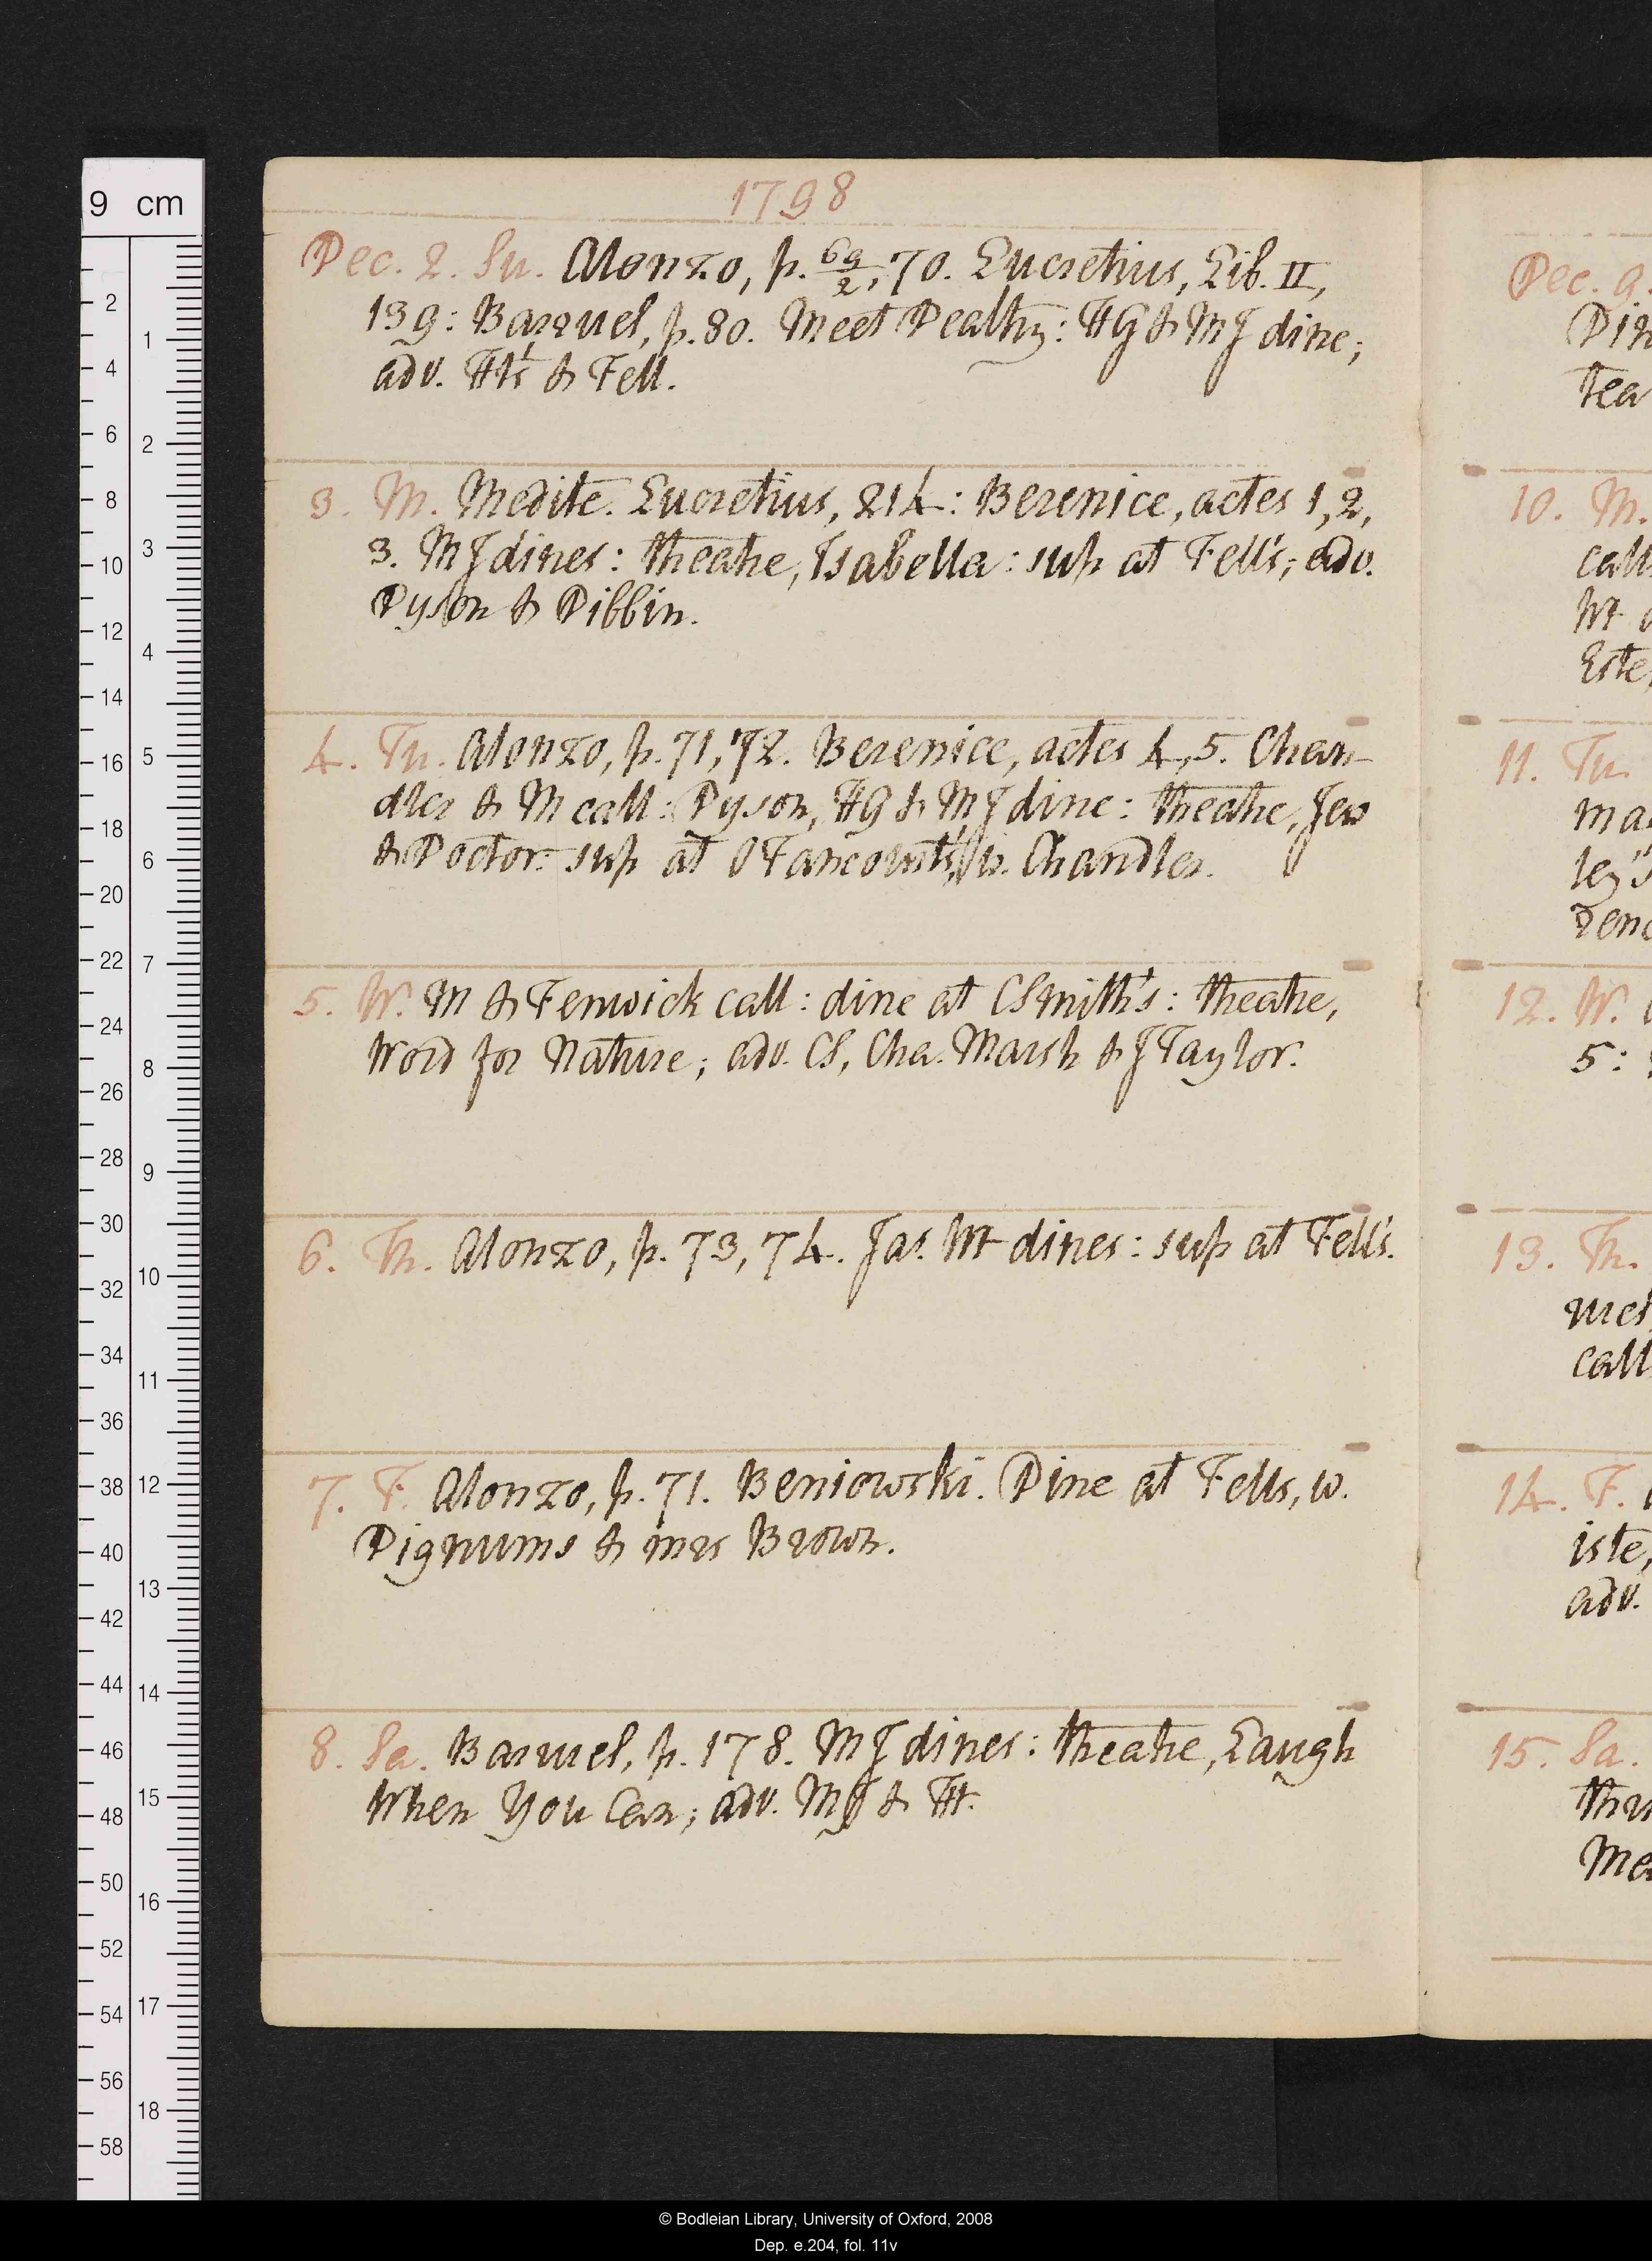 1798
Dec. 2. Su. Alonzo, p. 69/2, 70. Lucretius, Lib. II,
139: Barruel, p. 80. Meet Dealtry: HG & MJ dine;
adv. Ht's & Fell.
3. M. Medite. Lucretius, 214: Berenice, actes 1, 2,
3. MJ dines: theatre, Isabella: sup at Fell's; adv.
Dyson & Dibbin.
4. Tu. Alonzo, p. 71, 72. Berenice, actes 4, 5. Chan-
dler & M call: Dyson, HG & MJ dine: theatre, Jew
& Doctor: sup at Fancourt's, w. Chandler.
5. W. M & Fenwick call: dine at CSmith's: theatre,
Word for Nature; adv. CS, Cha. Marsh & JTaylor.
6. Th. Alonzo, p. 73, 74. Jas. Mt dines: sup at Fell's.
7. F. Alonzo, p. 71. Beniowski. Dine at Fells, w.
Dignums & mrs Brown.
8. Sa. Barruel, p. 178. MJ dines: theatre, Laugh
When You Can; adv. MJ & Ht.
Dec. 9.
Din
tea
10. M.
call
Mt
Este
11. Tu
ma
ley's
renc
12. W.
5:
13. Th.
ruel
call
14. F.
iste,
adv.
15. Sa.
thr
Me
9 cm
2 4 6 8 10 12 14 16 18 20 22 24 26 28 30 32 34 36 38 40 42 44 46 48 50 52 54 56 58
1 2 3 4 5 6 7 8 9 10 11 12 13 14 15 16 17 18
© Bodleian Library, University of Oxford, 2008
Dep. e.204, fol. 11v